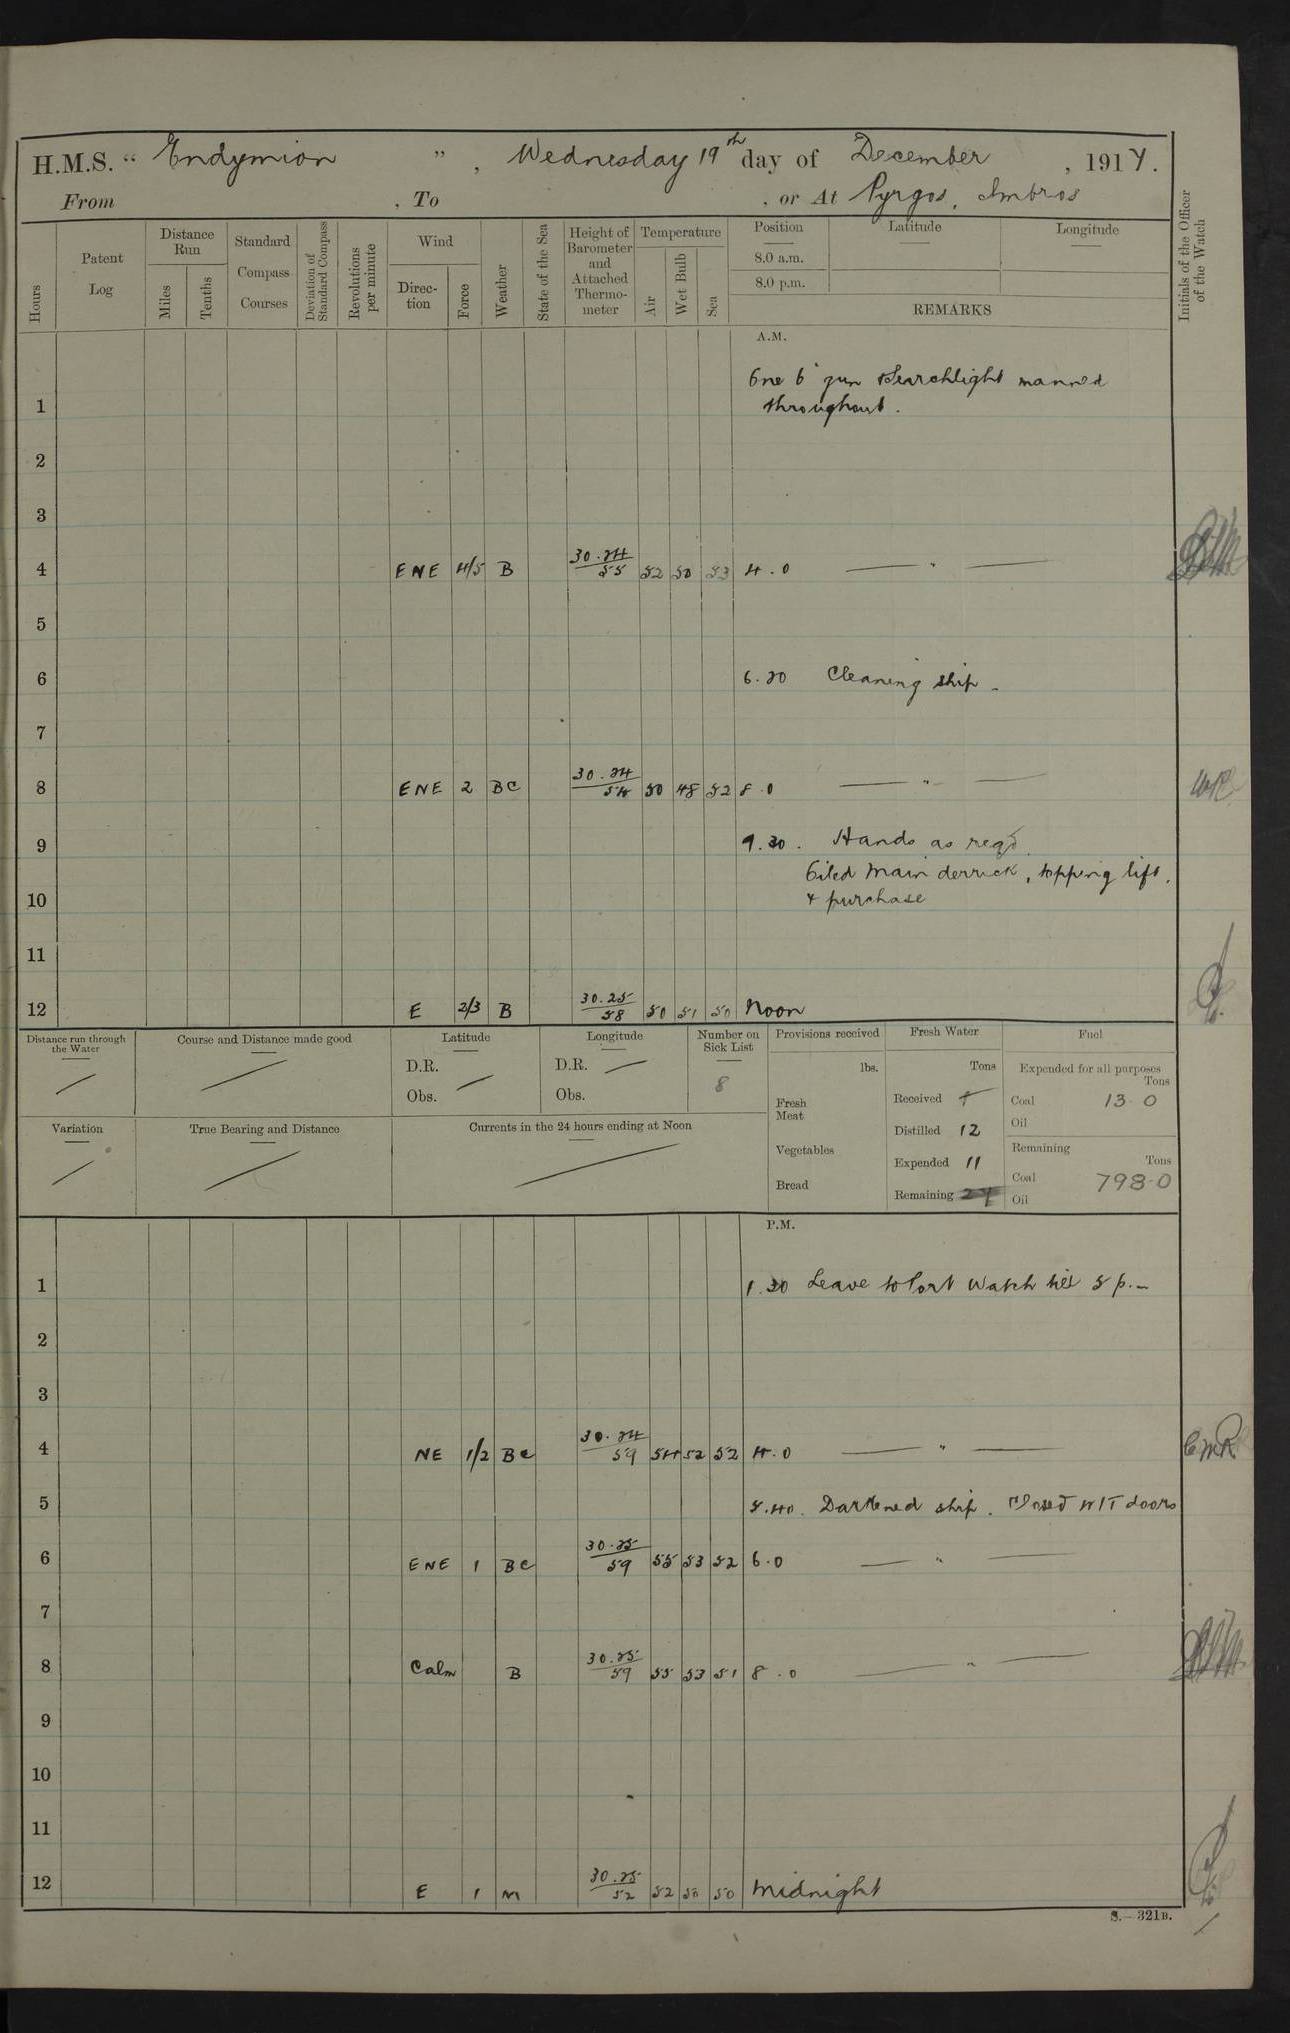 H.M.S. " Endymion ", Wednesday 19th day of December, 1917.
From , To , or At Pyrgos, Imbros
Hours
Patent Log
Distance Run
Miles
Tenths
Standard Compass Courses
Deviation of Standard Compass
Revolutions per minute
Wind
Direction
Force
Weather
State of the Sea
Height of Barometer and Attached Thermometer
Temperature
Air
Wet Bulb
Sea
Position
8.0 a.m.
8.0 p.m.
Latitude
Longitude
REMARKS
Initials of the Officer of the Watch
A.M.
One 6" gun & searchlight manned
1 throughout.
2
3
4 ENE 4/5 B 30.24/55 52 50 53 4.0 — " —
5
6 6.20 Cleaning ship.
7
8 ENE 2 BC 30.24/54 50 48 52 8.0 — " —
9 9.30. Hands as reqd.
Oiled main derrick, topping lift,
10 & purchase
11
12 E 2/3 B 30.25/58 50 51 50 Noon
Distance run through the Water
Course and Distance made good
Latitude
D.R.
Obs.
Longitude
D.R.
Obs.
Number on Sick List
8
Variation
True Bearing and Distance
Currents in the 24 hours ending at Noon
Provisions received
lbs.
Fresh Meat
Vegetables
Bread
Fresh Water
Tons
Received
Distilled 12
Expended 11
Remaining
Fuel
Expended for all purposes
Tons
Coal 13.0
Oil
Remaining
Tons
Coal 798.0
Oil
P.M.
1 1.30 Leave to Port Watch till 5 p.m
2
3
4 NE 1/2 BC 30.24/59 54 52 52 4.0 — " — CMR
5 5.40. Darkened ship. Closed W/T doors
6 ENE 1 BC 30.25/59 55 53 52 6.0 — " —
7
8 Calm B 30.25/59 55 53 51 8.0 — " —
9
10
11
12 E 1 M 30.25/52 52 50 50 Midnight
S.—321B.